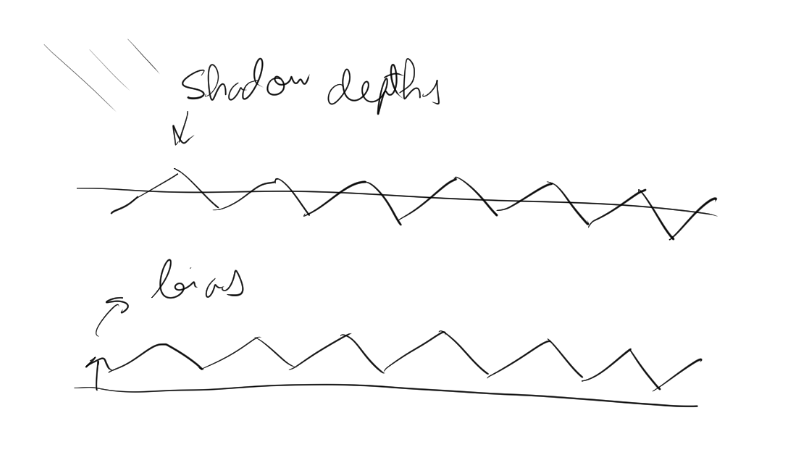 Shadow depths
bias